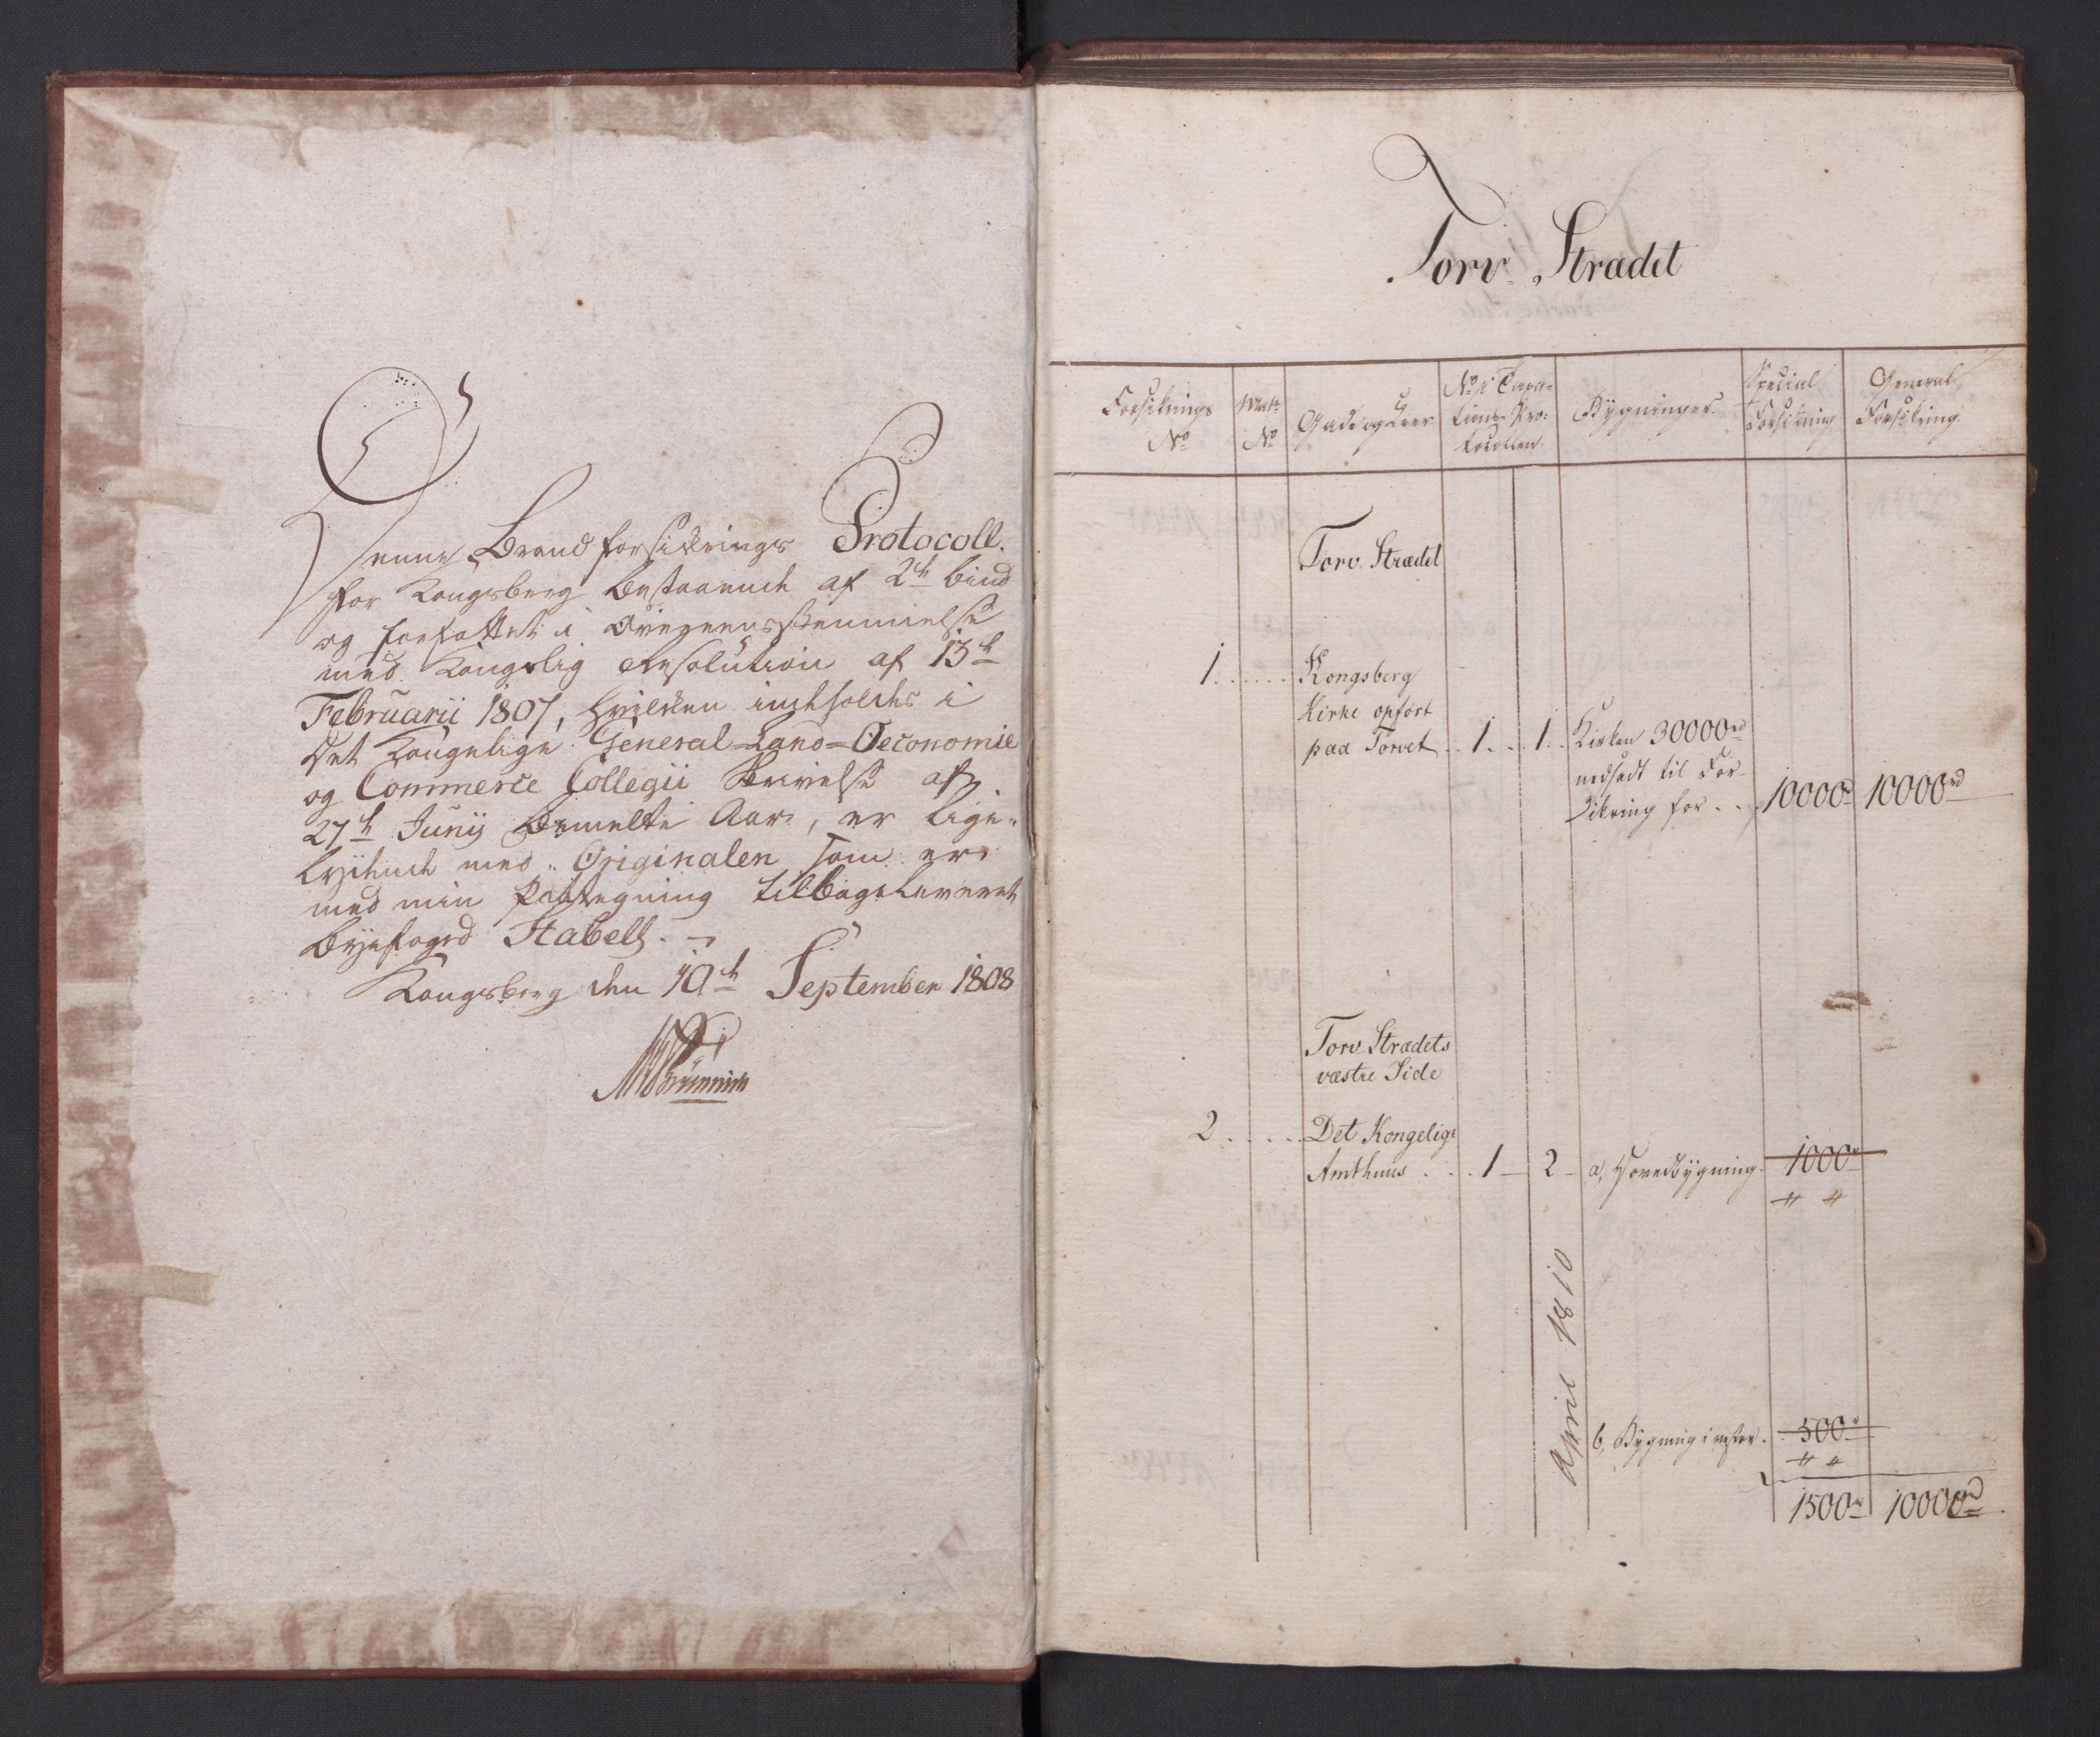 Denne Brandforsikrings Protocoll
for Kongsberg bestaaende af 2de bind
og forfattet i Overeensstemmelse
med Kongelig Resolution af 13de
Februarii 1807, hvilken indeholdes i
det Kongelige General-Land-Oeconomie
og Commerce Collegii Skrivelse af
27de Junii bemelte Aar, er lige-
lydende med Originalen som er
med min Paategning tilbageleveret
Byefoged Stabell.
Kongsberg den 10de September 1808
MBrünnich
Torv Strædet
Forsikrings No
Matr: No
Gade og Eier
No i Taxa-
tions-Pro-
tocollen
Bygninger.
Special
Forsikring
General
Forsikring
Torv Strædet
1. Kongsberg
Kirke opført
paa Torvet 1. 1. Kirken 30000rd
nedsadt til For-
sikring for 10000rd 10000rd
Torv Strædets
væstre Side
2. Det Kongelige
Amthuus 1 2 a, Hovedbygning 1000rd
" "
April 1810
b, Bygning i vester 500rd
" "
1500rd 10000rd